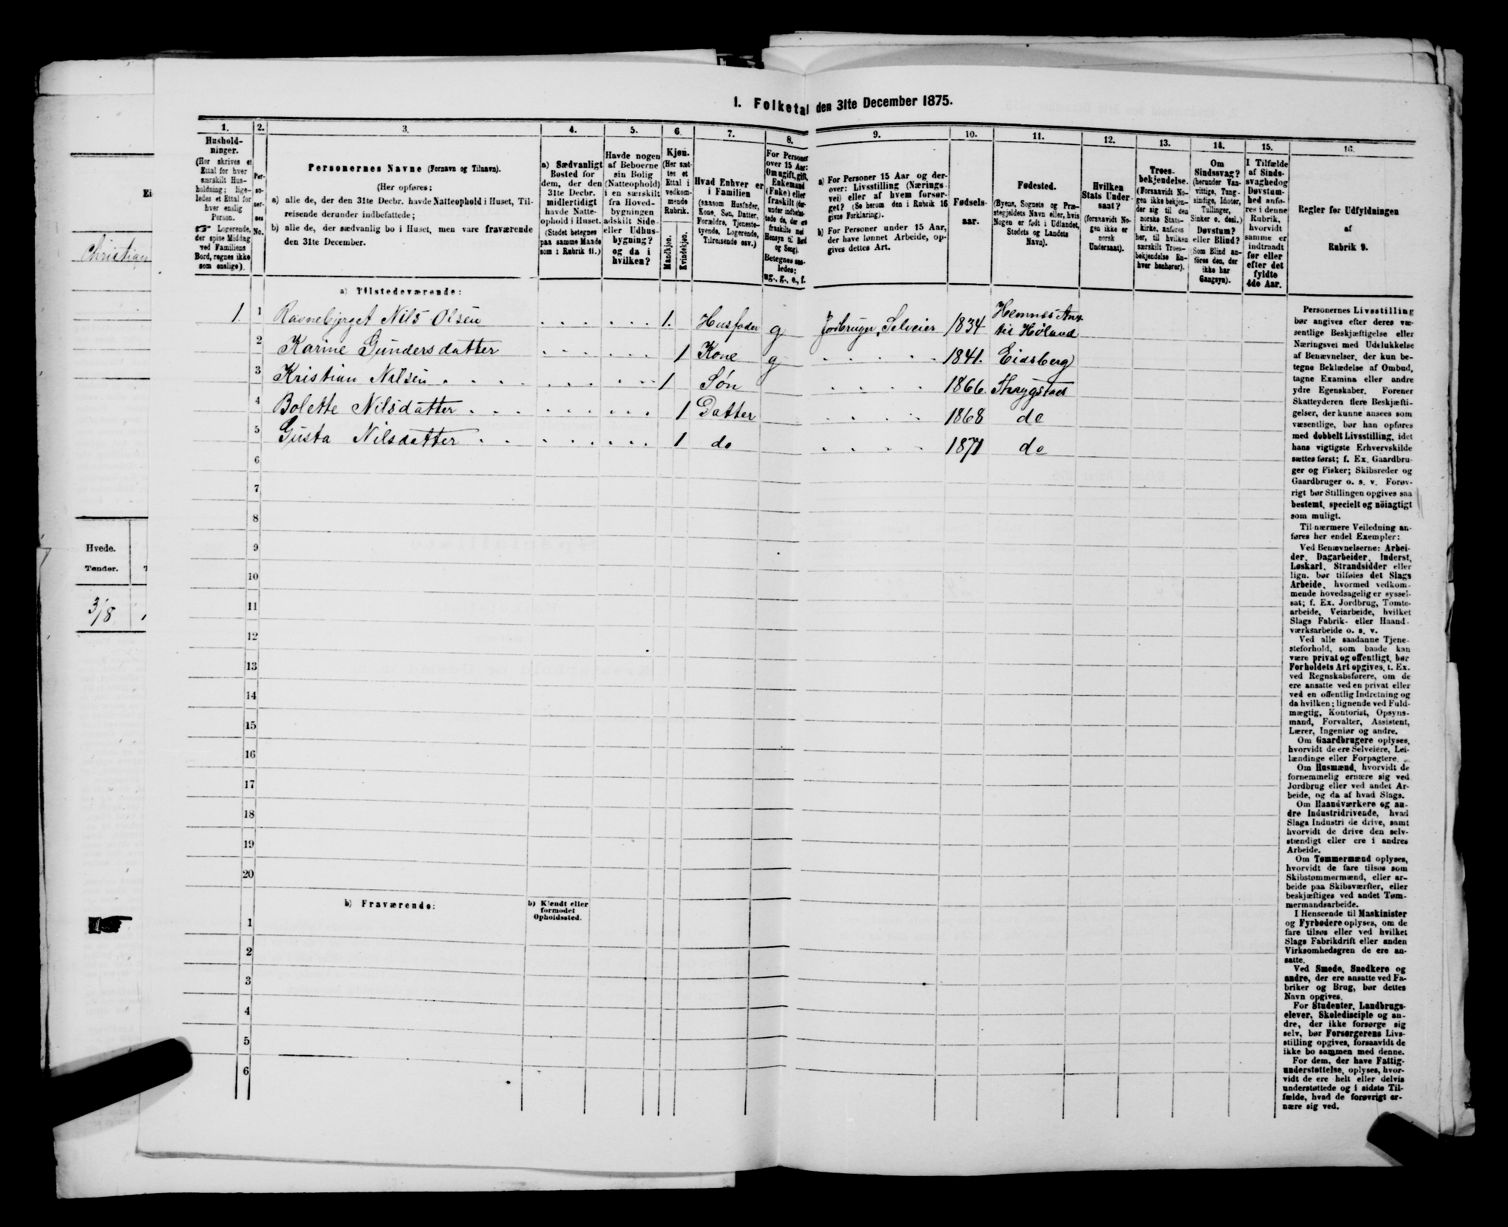 I. Folketal den 31te December 1875.
1.
2.
3.
4.
5.
6.
7.
8.
9.
10.
11.
12.
13.
14.
15.
16.
Hushold-
ninger.
(Her skrives et
Ettal for hver
særskilt Hus-
holdning; lige-
ledes et Ettal for
hver enslig
Person.
☞ Logerende,
der spise Middag
ved Familiens
Bord, regnes ikke
som enslige).
Per-
so-
ner-
nes
No.
Personernes Navne (Fornavn og Tilnavn).
(Her opføres:
a) alle de, der den 31te Decbr. havde Natteophold i Huset, Til-
reisende derunder indbefattede;
b) alle de, der sædvanlig bo i Huset, men vare fraværende
den 31te December.
a) Sædvanligt
Bosted for
dem, der den
31te Decbr.
midlertidigt
havde Natte-
ophold i Huset.
(Stedet betegnes
paa samme Maade
som i Rubrik 11.)
Havde nogen
af Beboerne
sin Bolig
(Natteophold)
i en særskilt
fra Hoved-
bygningen
adskilt Side-
eller Udhus-
bygning?
og da i
hvilken?
Kjøn.
(Her sæt-
tes et
Ettal i
vedkom-
mende
Rubrik.
Mandkjøn.
Kvindekjøn.
Hvad Enhver er
i Familien
(saasom Husfader,
Kone, Søn, Datter,
Forældre, Tjeneste-
tyende, Logerende,
Tilreisende osv.)
For Personer
over 15 Aar:
Om ugift, gift,
Enkemand
(Enke) eller
fraskilt
Betegnes saa-
ledes:
ug., g., e., f.
a) For Personer 15 Aar og der-
over: Livsstilling (Nærings-
vei) eller af hvem forsør-
get? (Se herom den i Rubrik 16
givne Forklaring).
b) For Personer under 15 Aar,
der have lønnet Arbeide, op-
gives dettes Art.
Fødsels-
aar.
Fødested.
(Byens, Sognets og Præ-
stegjeldets Navn eller, hvis
Nogen er født i Udlandet,
Stedets og Landets
Navn).
Hvilken
Stats Under-
saat?
(forsaavidt No-
gen ikke er
norsk
Undersaat).
Troes-
bekjendelse.
(Forsaavidt No-
gen ikke bekjen-
der sig til den
norske Stats-
kirke, anføres
her, til hvilken
særskilt Troes-
bekjendelse En-
hver henhører).
Om
Sindssvag?
(herunder Van-
vittige, Tung-
sindige, Idioter,
Tullinger,
Sinker o. desl.)
Døvstum?
eller Blind?
(Som Blind an-
føres den, der
ikke har
Gangsyn).
I Tilfælde
af Sinds-
svaghed og
Døvstum-
hed anfø-
res i denne
Rubrik,
hvorvidt
samme er
indtraadt
før eller
efter det
fyldte
4de Aar.
Regler for Udfyldningen
af
Rubrik 9.
a) Tilstedeværende:
1 1 Ravnebjerget Nils Olsen 1. Husfader g Jordbrugn, Selveier 1834
2 Karine Gundersdatter 1 Kone g 1841. Eidsberg
3 Kristian Nilsen 1 Søn 1866. Thrygstad
4 Bolette Nilsdatter 1 Datter 1868 do
5 Gusta Nilsdatter 1 do 1871 do
6
7
8
9
10
11
12
13
14
15
16
17
18
19
20
b) Fraværende:
b) Kjendt eller
formodet
Opholdssted.
1
2
3
4
5
6
Personernes Livsstilling
bør angives efter deres væ-
sentlige Beskjæftigelse eller
Næringsvei med Udelukkelse
af Benævnelser, der kun be-
tegne Bekledelse af Ombud,
tagne Examina eller andre
ydre Egenskaber. Forener
Skatteyderen flere Beskjæfti-
gelser, der kunne ansees som
væsentlige, bør han opføres
med dobbelt Livsstilling, idet
hans vigtigste Erhvervskilde
sættes først; f. Ex. Gaardbru-
ger og Fisker; Skibsreder og
Gaardbruger o. s. v. Forøv-
rigt bør Stillingen opgives saa
bestemt, specielt og nøiagtigt
som muligt.
Til nærmere Veiledning an-
føres her endel Exempler:
Ved Benævnelserne: Arbei-
der, Dagarbeider, Inderst,
Løskarl, Strandsidder eller
lign. bør tilføies det Slags
Arbeide, hvormed vedkom-
mende hovedsagelig er syssel-
sat; f. Ex. Jordbrug, Tomte-
arbeide, Veiarbeide, hvilket
Slags Fabrik- eller Haand-
værksarbeide o. s. v.
Ved alle saadanne Tjene-
steforhold, som baade kan
være privat og offentligt, bør
Forholdets Art opgives, t. Ex.
ved Regnskabsførere, om de
ere ansatte ved en privat eller
ved en offentlig Indretning og
da hvilken; lignende ved Fuld-
mægtig, Kontorist, Opsyns-
mand, Forvalter, Assistent,
Lærer, Ingeniør og andre.
Om Gaardbrugere oplyses,
hvorvidt de ere Selveiere, Lei-
lændinge eller Forpagtere.
Om Husmænd, hvorvidt de
fornemmelig ernære sig ved
Jordbrug eller ved andet Ar-
beide, og da af hvad Slags.
Om Haandværkere og an-
dre Industridrivende, hvad
Slags Industri de drive, samt
hvorvidt de drive den selv-
stændigt eller ere i andres
Arbeide.
Om Tømmermænd oplyses,
hvorvidt de fare tilsøs som
Skibstømmermænd, eller ar-
beide paa Skibsværfter, eller
beskjæftiges ved andet Tøm-
mermandsarbeide.
I Henseende til Maskinister
og Fyrbødere oplyses, om de
fare tilsøs eller ved hvilket
Slags Fabrikdrift eller anden
Virksomhedsgren de ere an-
satte.
Ved Smede, Snedkere og
andre, der ere ansatte ved Fa-
briker og Brug, bør dettes
Navn opgives.
For Studenter, Landbrugs-
elever, Skoledisciple og an-
dre, der ikke forsørge sig
selv, bør Forsørgerens Livs-
stilling opgives, forsaavidt de
ikke bo sammen med denne.
For dem, der have Fattig-
understøttelse, oplyses, hvor-
vidt de ere helt eller delvis
understøttede og i sidste Til-
fælde, hvad de forøvrigt er-
nære sig ved.
Ei
Christian
Hvede.
Tønder.
3/8